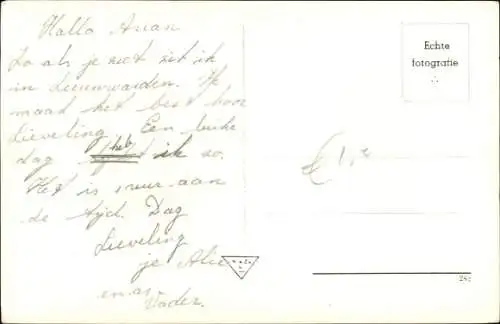 Hallo Arian
Zo als je ziet zit ik
in Leeuwarden. Ik
maak het best hoor
Lieveling. Een leuke
dag heb ik zo.
Het is 1 uur aan
de tijd. Dag
Lieveling
je Alie
en
Vader.
Echte
fotografie